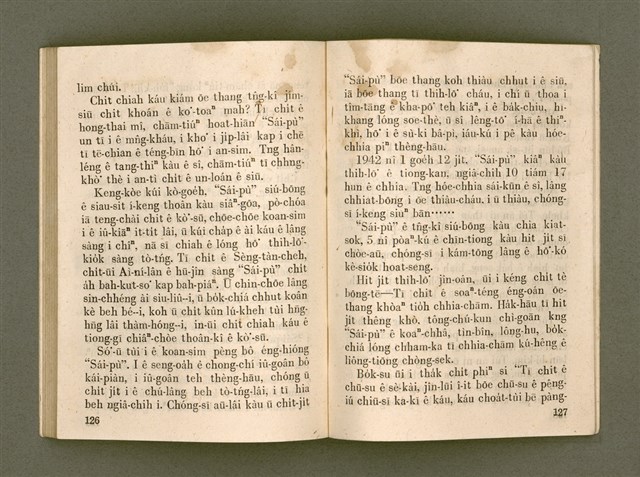 lim chúi.
Chit chiah káu kiám ōe thang tn̂g-kî jím-
siū chit khoán ê kơ-toaⁿ mah? Tī chit ê
hong-thai mî, chām-tiúⁿ hoat-hiān "Sái-pù"
un tī i ê mn̂g-kháu, i khơ i ji̍p-lâi kap i chē
tī tē-chian ê téng-bīn hơ i an-sim. Tng hân-
léng ê tang-thiⁿ kàu ê sî, chām-tiúⁿ tī chhng-
khờ thè i an-tì chit ê un-loán ê siū.
Keng-kòe kúi kò-goe̍h. "Sái-pù" siú-bōng
ê siau-sit í-keng thoân kàu siâⁿ-gōa, pò-chóa
iā teng-chài chit ê kờ-sū, chōe-chōe koan-sim
i ê iû-kiāⁿ it-tit lâi, ū kúi cha̍p ê ài káu ê lâng
sàng i chîⁿ, nā sī chiah ê lóng hờ thih-lờ-
kio̍k sàng tò-tńg. Tī chit ê Sèng-tàn-cheh,
chit-ūi Ai-ní-lân ê hū-jîn sàng "Sái-pù" chit
a̍h bah-kut-sơ kap bah-piáⁿ. Ū chin-chōe lâng
sin-chhéng ài siu-liû--i, ū bo̍k-chiá chhut koân
kè beh bé--i, koh ū chit kûn lú-kheh tùi hn̄g-
hn̄g lâi thàm-hóng--i, in-ūi chit chiah káu ê
tiong-gī chiâⁿ-chòe thoân-kî ê kờ-sū.
Sớ-ū tùi i ê koan-sim pèng bô éng-hióng
"Sái-pù". I ê seng-oa̍h ê chong-chí iû-goân bô
kái-piàn, i iû-goân teh thèng-hāu, chóng ū
chit ji̍t i ê chú-lâng beh tò-tńg-lâi, i tī hia
beh ngiâ-chih i. Chóng-sī aū-lâi kàu ū chi̍t-ji̍t
126
"Sái-pù" bōe thang koh thiàu chhut i ê siū,
iā bōe thang tī thih-lờ cháu, i chí ū thoa i
tîm-tāng ê kha-pờ teh kiâⁿ, i ê ba̍k-chiu, hī-
khang lóng soe-thè, ū sî léng-tờ í-hā ê thiⁿ-
khì, hờ i ê sù-ki bâ-pì, iáu-kú i pê kàu hóc-
chhia pīⁿ thèng-hāu.
1942 nî 1 goe̍h 12 ji̍t. "Sái-pù" kiâⁿ kàu
thih-lờ ê tiong-kan, ngiâ-chih 10 tiám 17
hun ê chhia. Tng hóc-chhia sái-kūn ê sî, lâng
chhiat-bōng i ōe thiàu-cháu, i ū thiàu, chóng-
sī í-keng siuⁿ bān……
"Sái-pù" ê tn̂g-kî siú-bōng kàu chia kiat-
sok, 5 nî pòaⁿ-kú ê chīn-tiong kàu hit ji̍t sī
chòe-aū, chóng-sī i kám-tōng lâng ê hơ-kó
kè-sio̍k hoat-seng.
Hit ji̍t thih-lờ jîn-oân, ūi i kéng chi̍t tè
bōng-tē—Tī chit ê soaⁿ-téng éng-oán ōe-
thang khòaⁿ tio̍h chhia-chām. Ha̍k-hāu tī hit
ji̍t thêng khò. tông-chú-kun chi-goān kng
"Sái-pù" ê koaⁿ-chhâ, tin-bîn, lông-hu, bo̍k-
chiá lóng chham-ka tī chhia-chām kú-hêng ê
liông-tiōng chòng-sek.
Bo̍k-su ūi i tha̍k chit phiⁿ sî "Tī chit ê
chū-su ê sè-kài, jîn-lūi î-it bōe chū-su ê pêng-
iú chiū-sī ka-kī ê káu, káu choa̍t-tùi bē pàng-
127